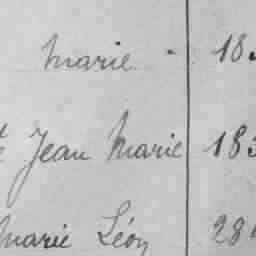 Marie 18
Jean Marie 183
Marie Léon 28